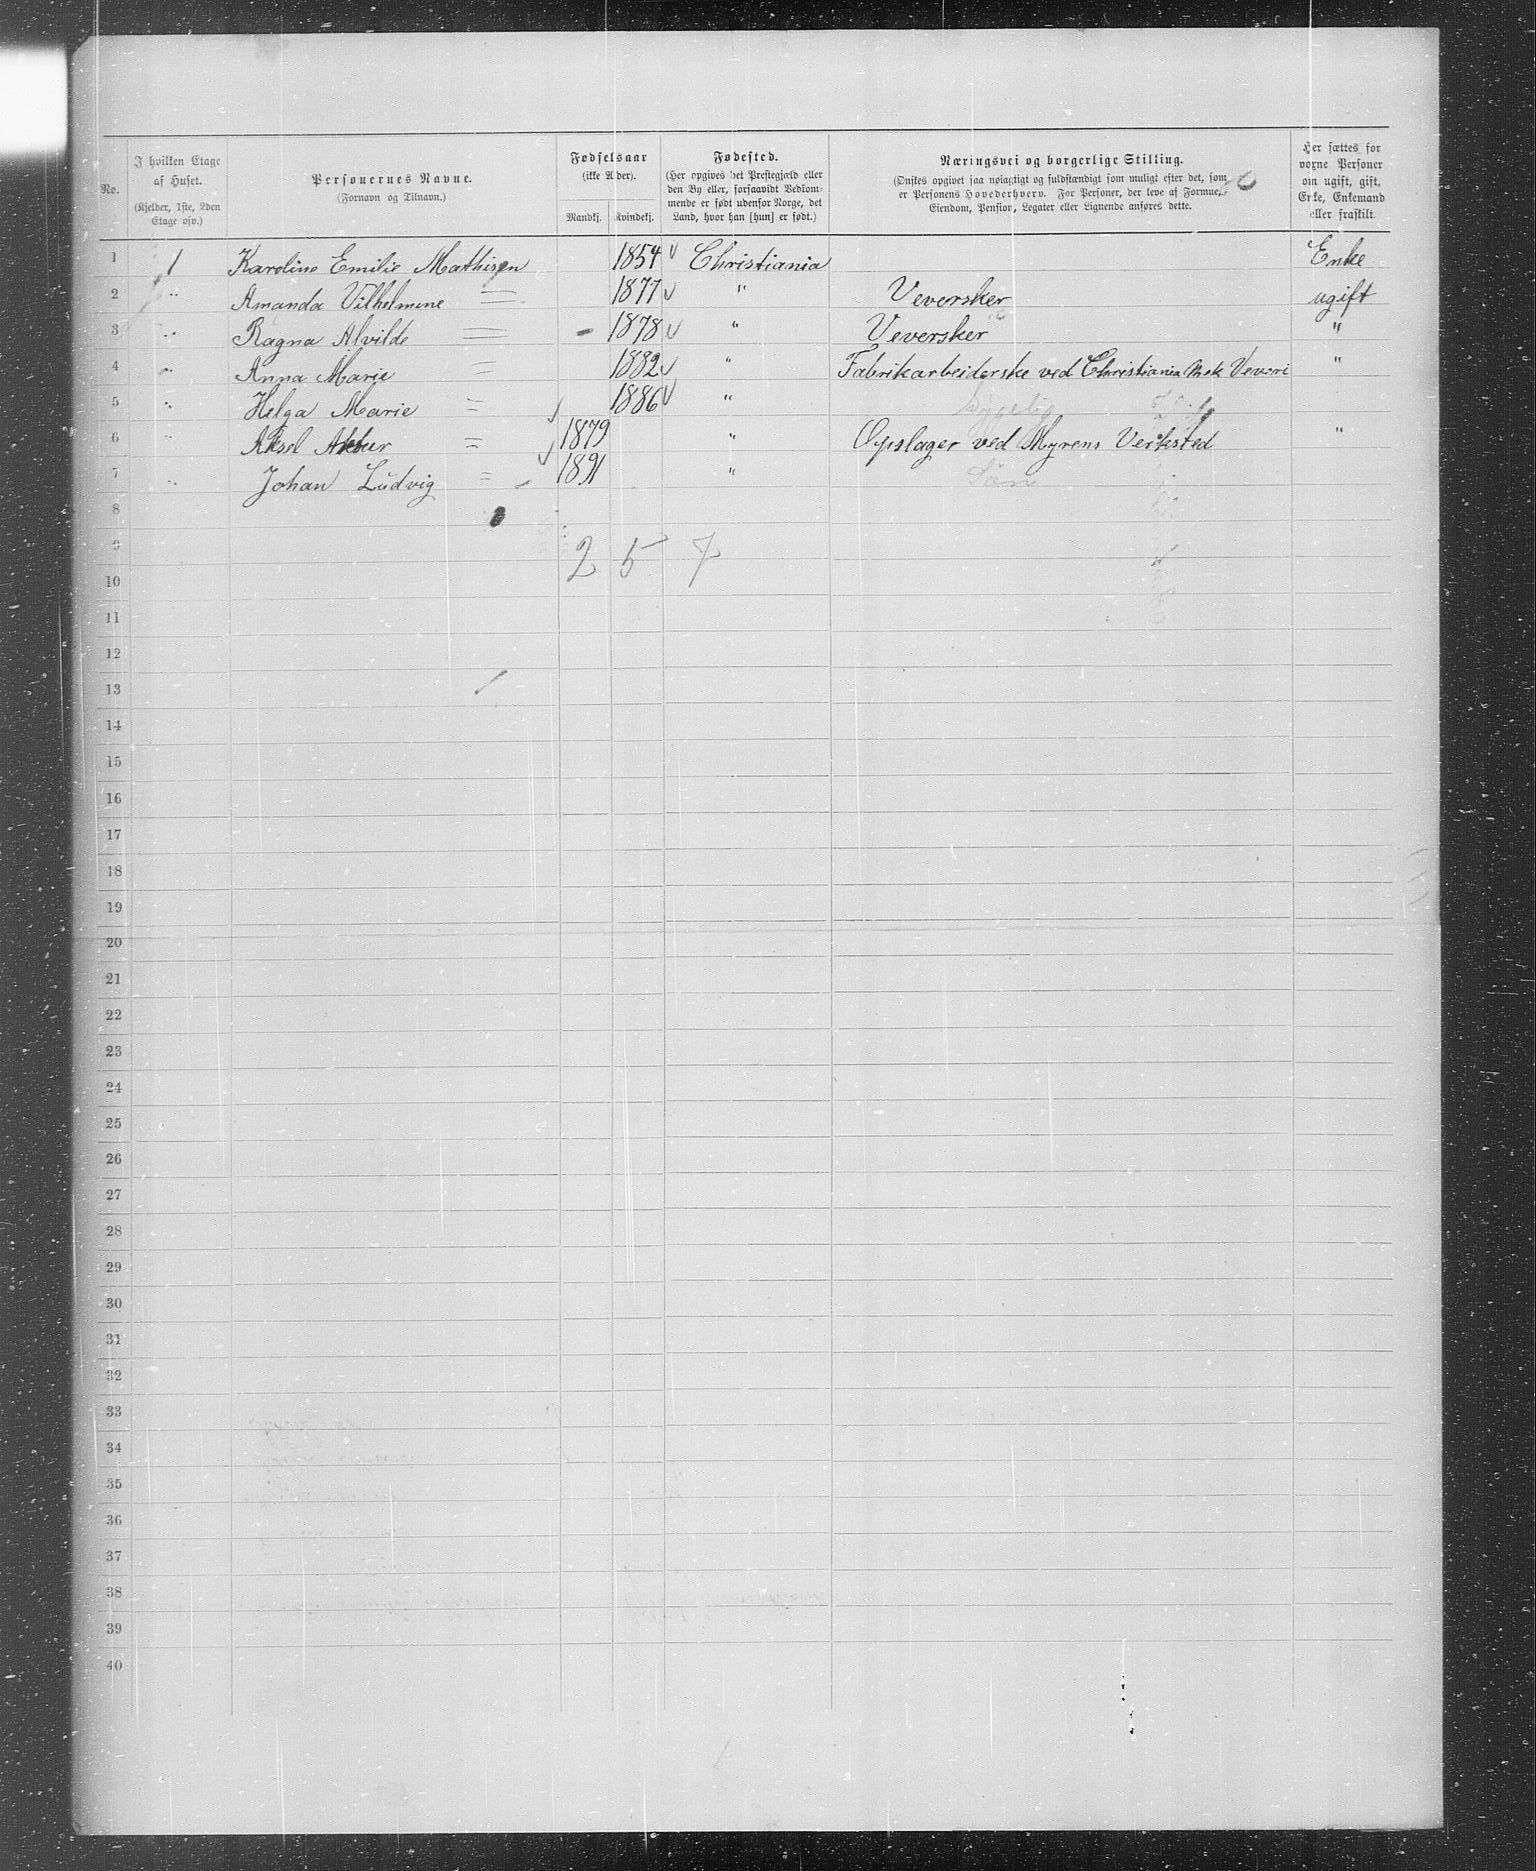 No. | I hvilken Etage af Huset. (Kjelder, 1ste, 2den Etage osv.) | Personernes Navne. (Fornavn og Tilnavn.) | Fødselsaar (ikke Alder). Mandkj. | Kvindekj. | Fødested. (Her opgives det Prestegjeld eller den By eller, forsaavidt Vedkommende er født udenfor Norge, det Land, hvor han [hun] er født.) | Næringsvei og borgerlige Stilling. (Ønskes opgivet saa nøiagtigt og fuldstændigt som muligt efter det, som er Personens Hovederhverv. For Personer, der leve af Formue, Eiendom, Pension, Legater eller Lignende anføres dette. | Her sættes for voxne Personer om ugift, gift, Enke, Enkemand eller fraskilt.
1 | 1 | Karoline Emilie Mathisen | | 1854 | Christiania | | Enke
2 | " | Amanda Vilhelmine = | | 1877 | " | Veverske | ugift
3 | " | Ragna Alvilde = | - | 1878 | " | Veverske | "
4 | " | Anna Marie = | | 1882 | " | Fabrikarbeiderske ved Christiania Mek Veveri | "
5 | " | Helga Marie = | | 1886 | " | Sygelig
6 | " | Aksel Artur = | 1879 | | " | Opslager ved Myrens Verksted | "
7 | " | Johan Ludvig = | 1891 | | " | Søn
8
9 | 2 5 7
10
11
12
13
14
15
16
17
18
19
20
21
22
23
24
25
26
27
28
29
30
31
32
33
34
35
36
37
38
39
40